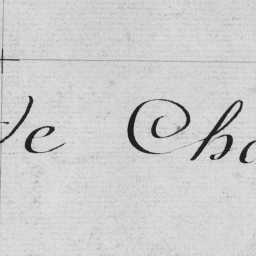 e Cha